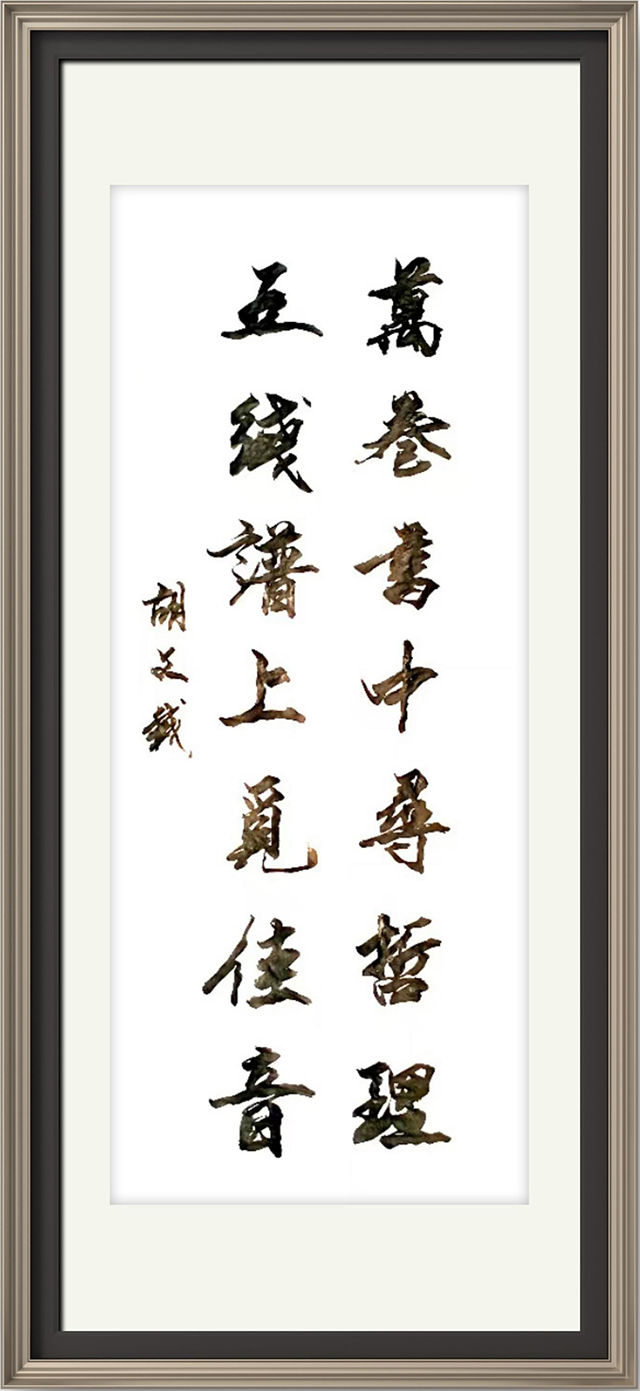 萬卷书中尋哲理
五线譜上覓佳音
胡文